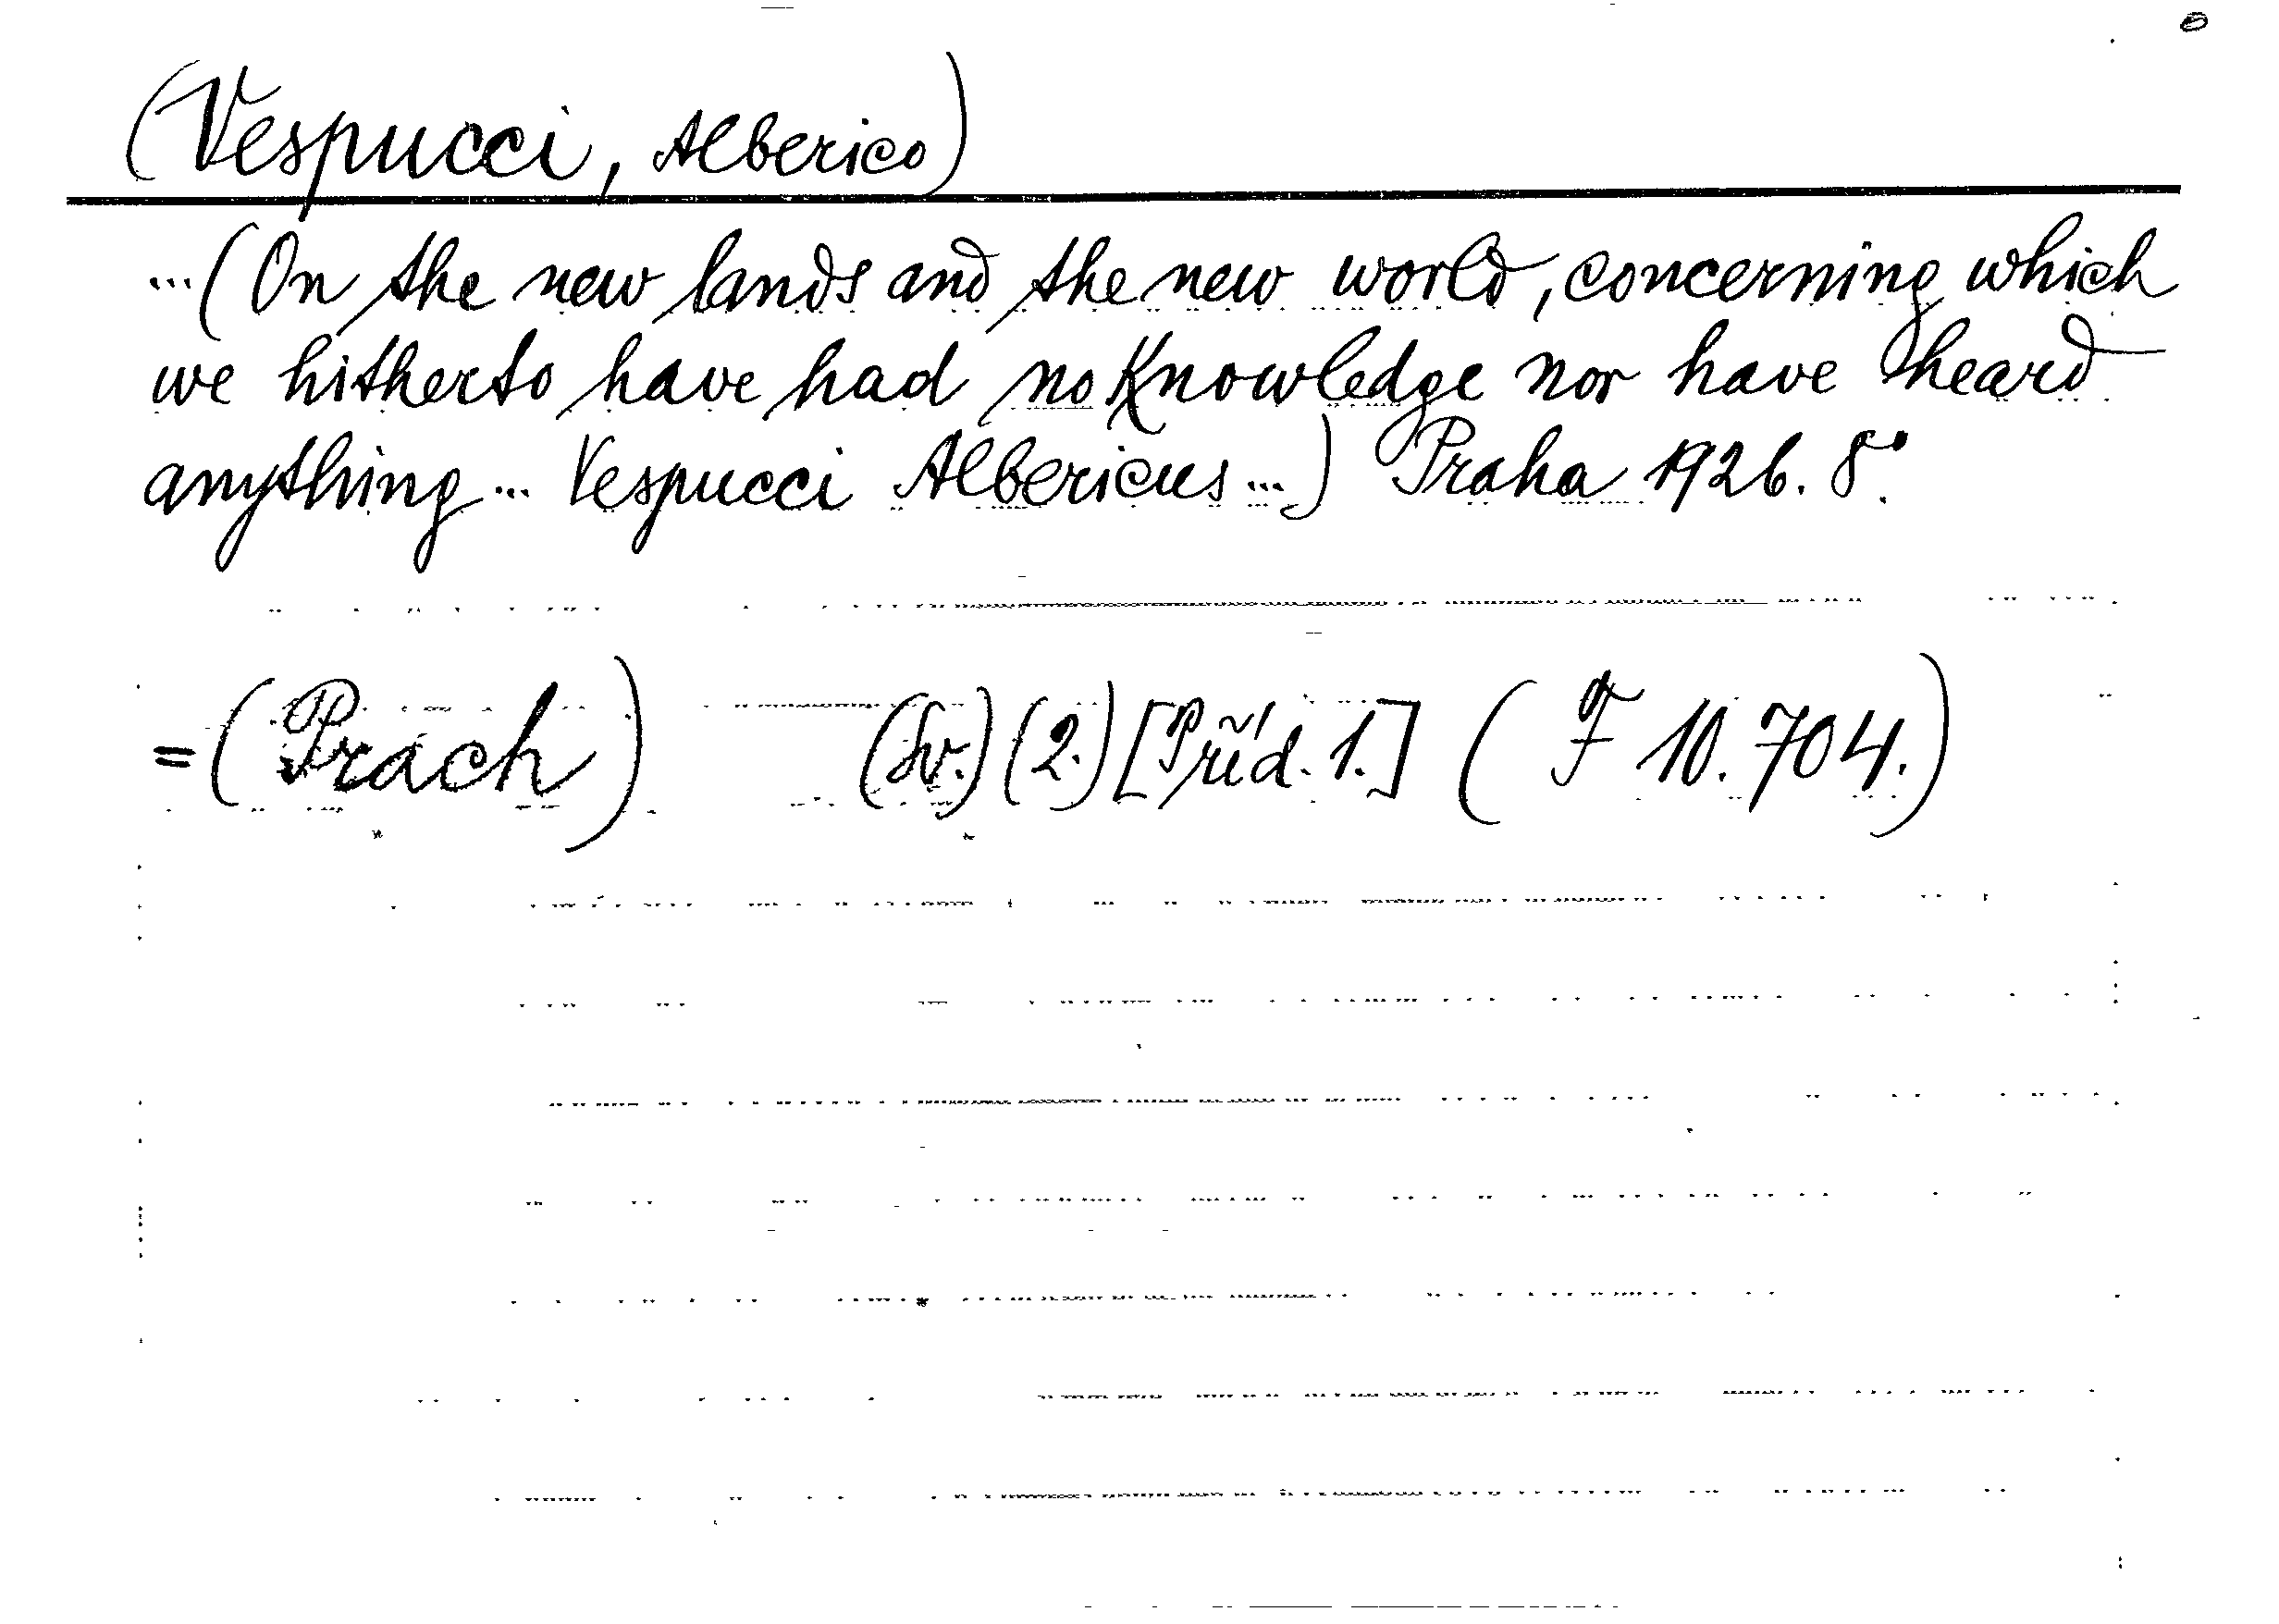 (Vespucci, Alberico)
...(On the new lands and the new world, concerning which
we hitherto have had no Knowledge nor have heard
anything... Vespucci Albericus...) Praha 1926. 8°.
=(Prach) (Sv.)(2.)[Příd. 1.] (F 10.704.)